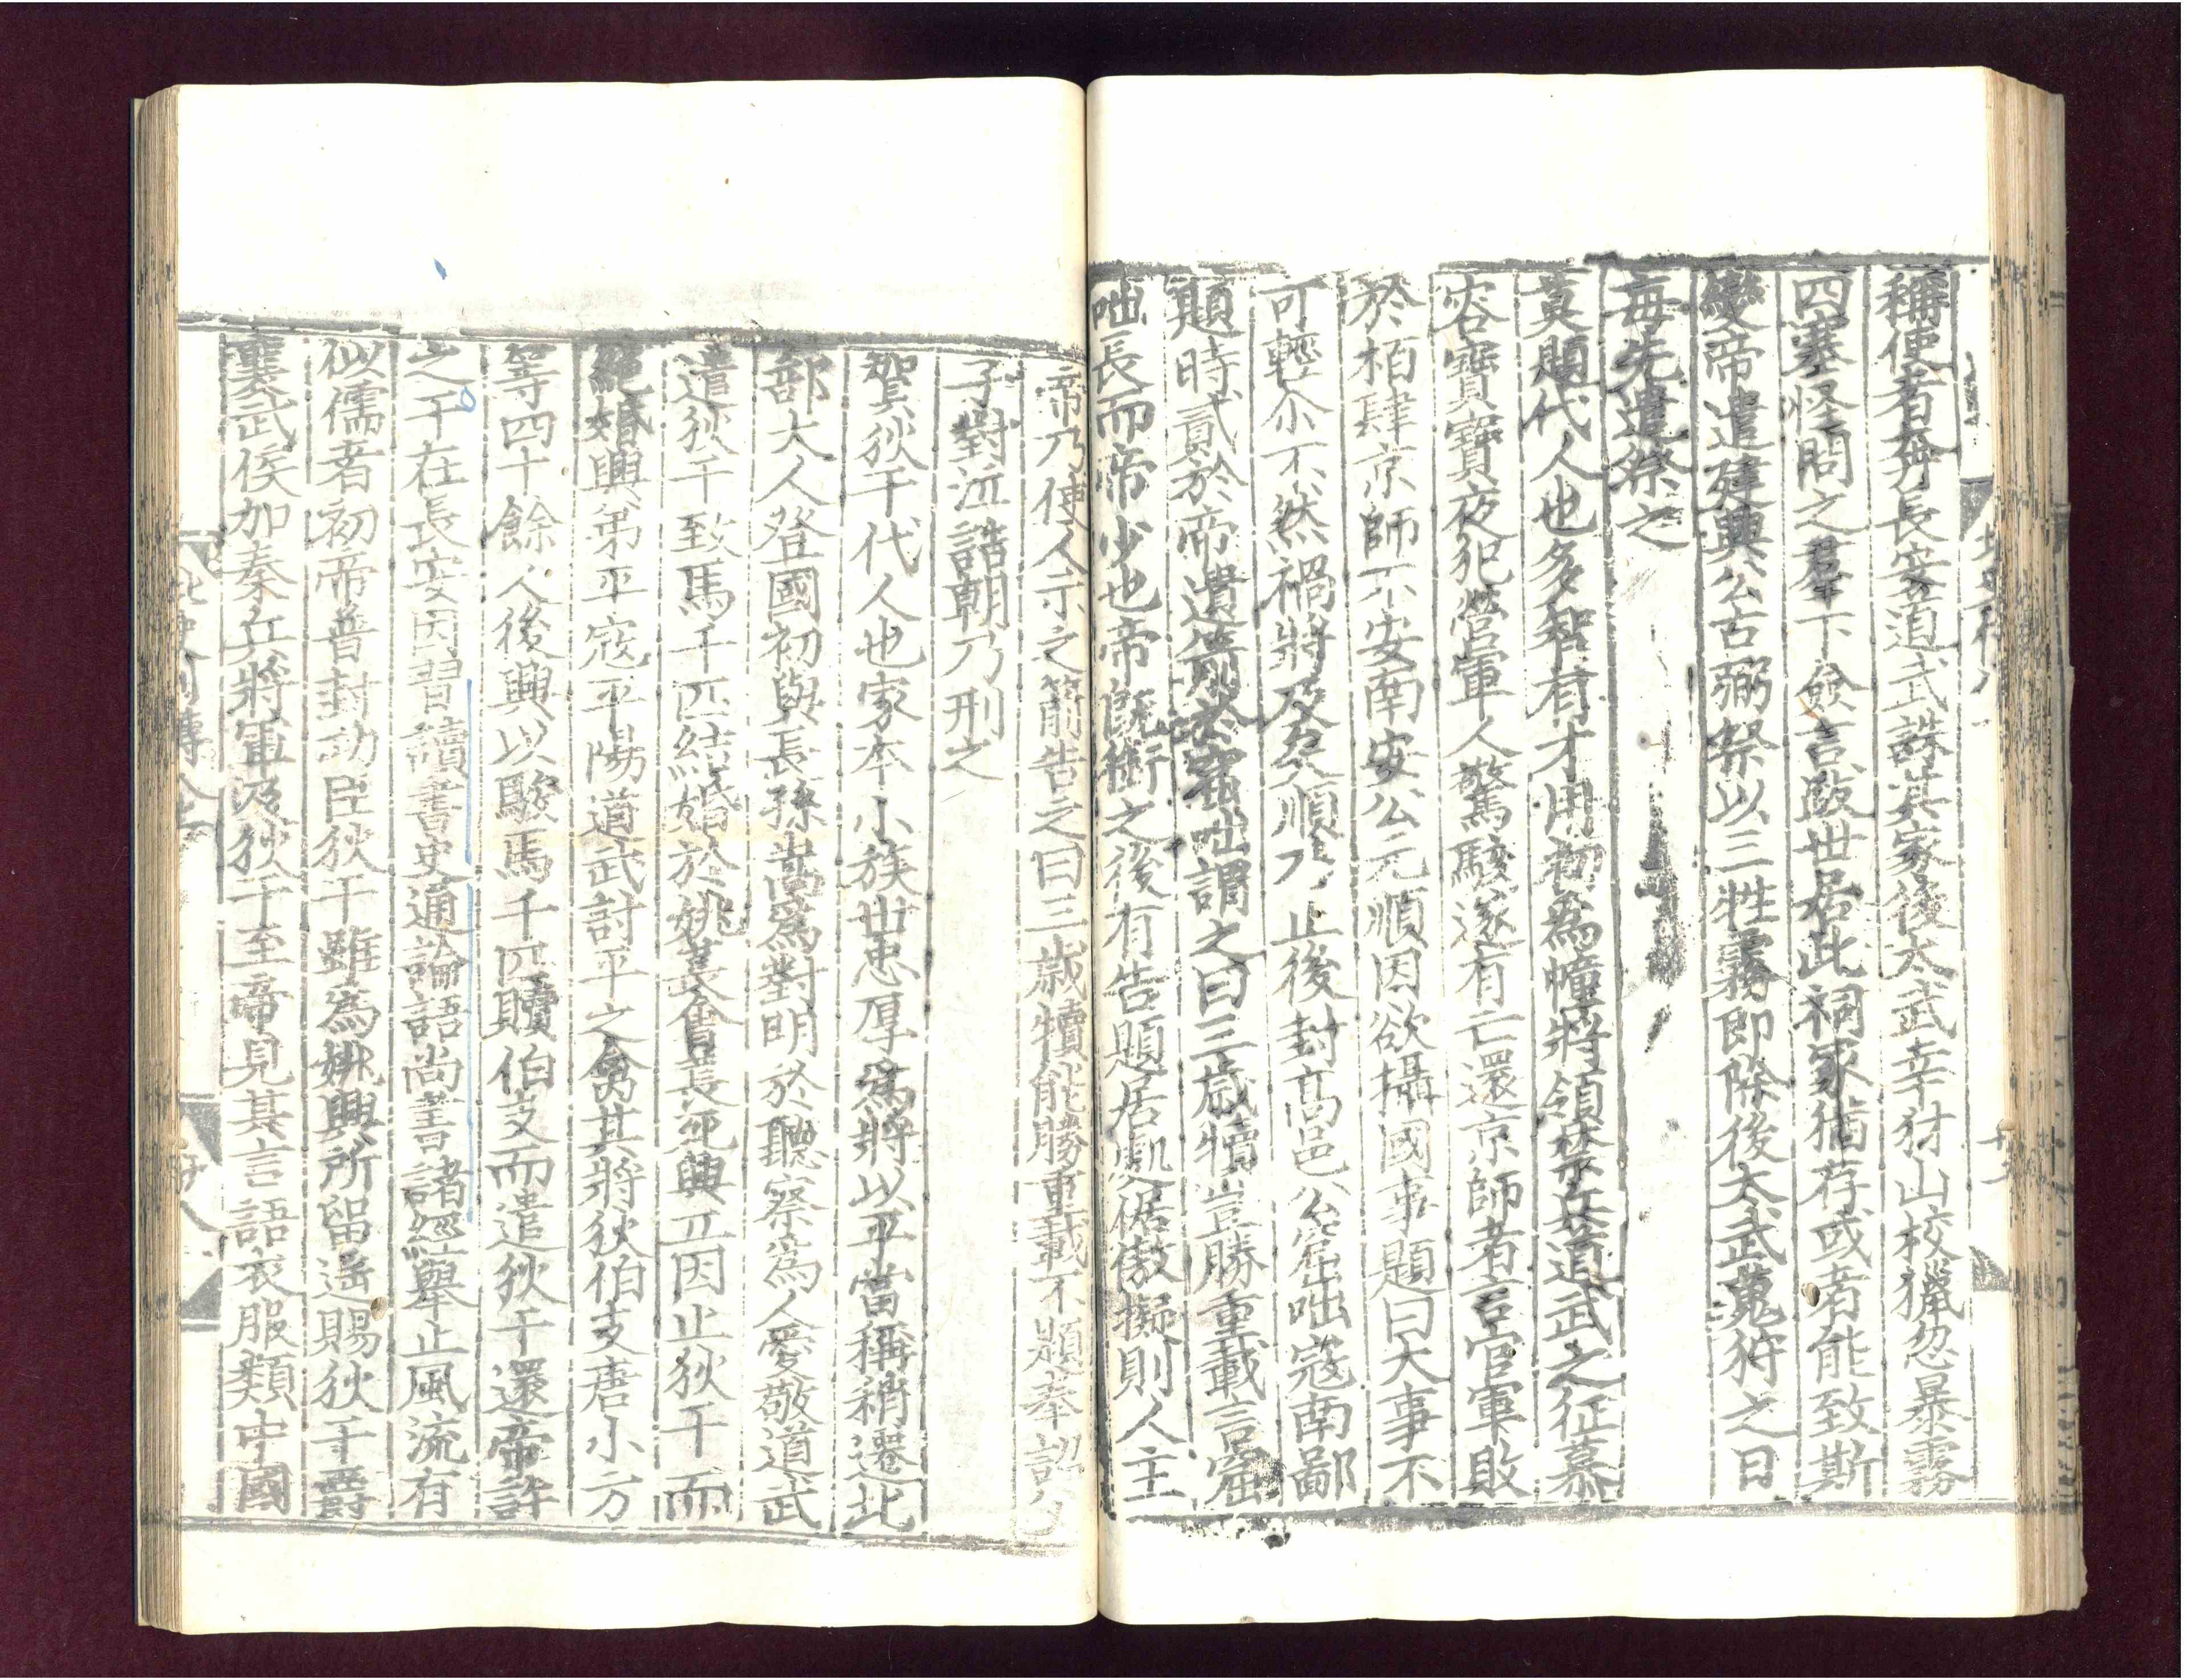 稱使者奔長安道武誅其家後太武幸豺山校獵忽暴霧
四塞怪問之羣下僉言跋世居此祠冢猶存或者能致斯
變帝遣建興公古弼祭以三牲霧即除後太武蒐狩之日
每先遣祭之
莫題代人也多智有才用初爲幢將領禁兵道武之征慕
容寶寶夜犯營軍人驚駭遂有亡還京師者言官軍敗
於栢肆京師不安南安公元順因欲攝國事題曰大事不
可輕尒不然禍將及矣順乃止後封高邑公窟咄寇南鄙
題時貳於帝遺箭於窟咄謂之曰三歲犢豈勝重載言窟
咄長而帝少也帝旣銜之後有告題居處倨傲擬則人主
帝乃使人示之箭告之曰三歲犢能勝重載不題奉詔父
子對泣詰朝乃刑之
賀狄干代人也家本小族世忠厚爲將以平當稱稍遷北
部大人登國初與長孫嵩爲對明於聽察爲人愛敬道武
遣狄干致馬千匹結婚於姚萇會萇死興立因止狄干而
絕婚興弟平寇平陽道武討平之禽其將狄伯支唐小方
等四十餘人後興以駿馬千匹贖伯支而遣狄干還帝許
之干在長安因習讀書史通論語尚書諸經舉止風流有
似儒者初帝普封功臣狄干雖爲姚興所留遥賜狄干爵
襄武侯加秦兵將軍及狄干至帝見其言語衣服類中國
北史列傳八 廿八